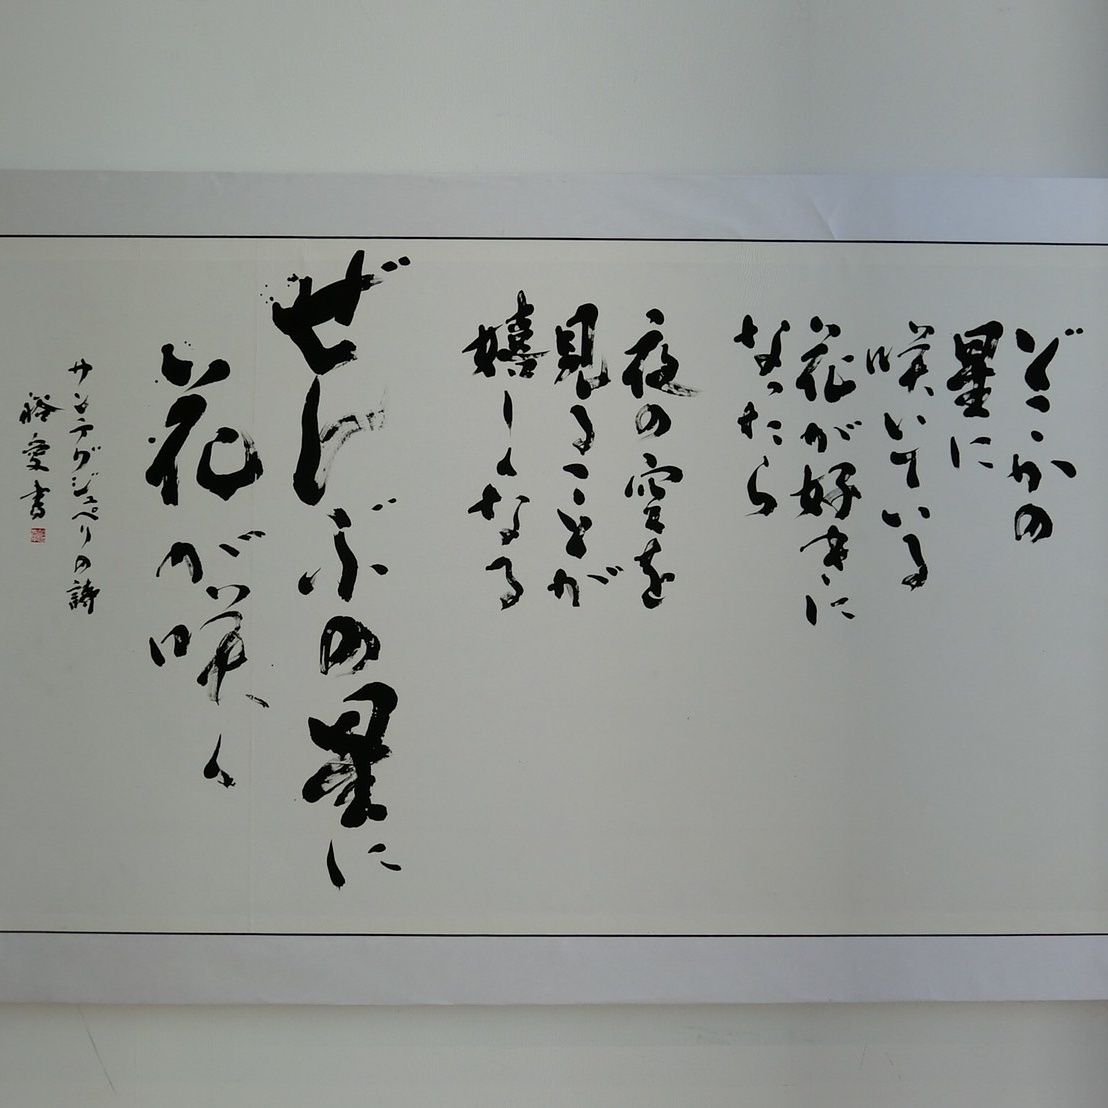 どこかの
星に
咲いている
花が好きに
なったら
夜の空を
見ることが
嬉しくなる
ぜんぶの星に
花が咲く
サンテグジュペリの詩
裕愛書